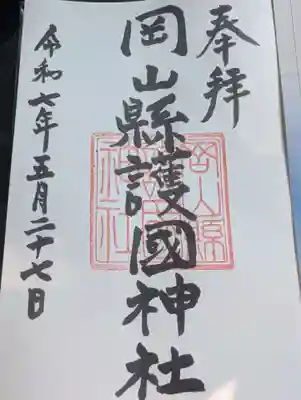 奉拝
岡山縣護國神社
令和六年五月二十七日